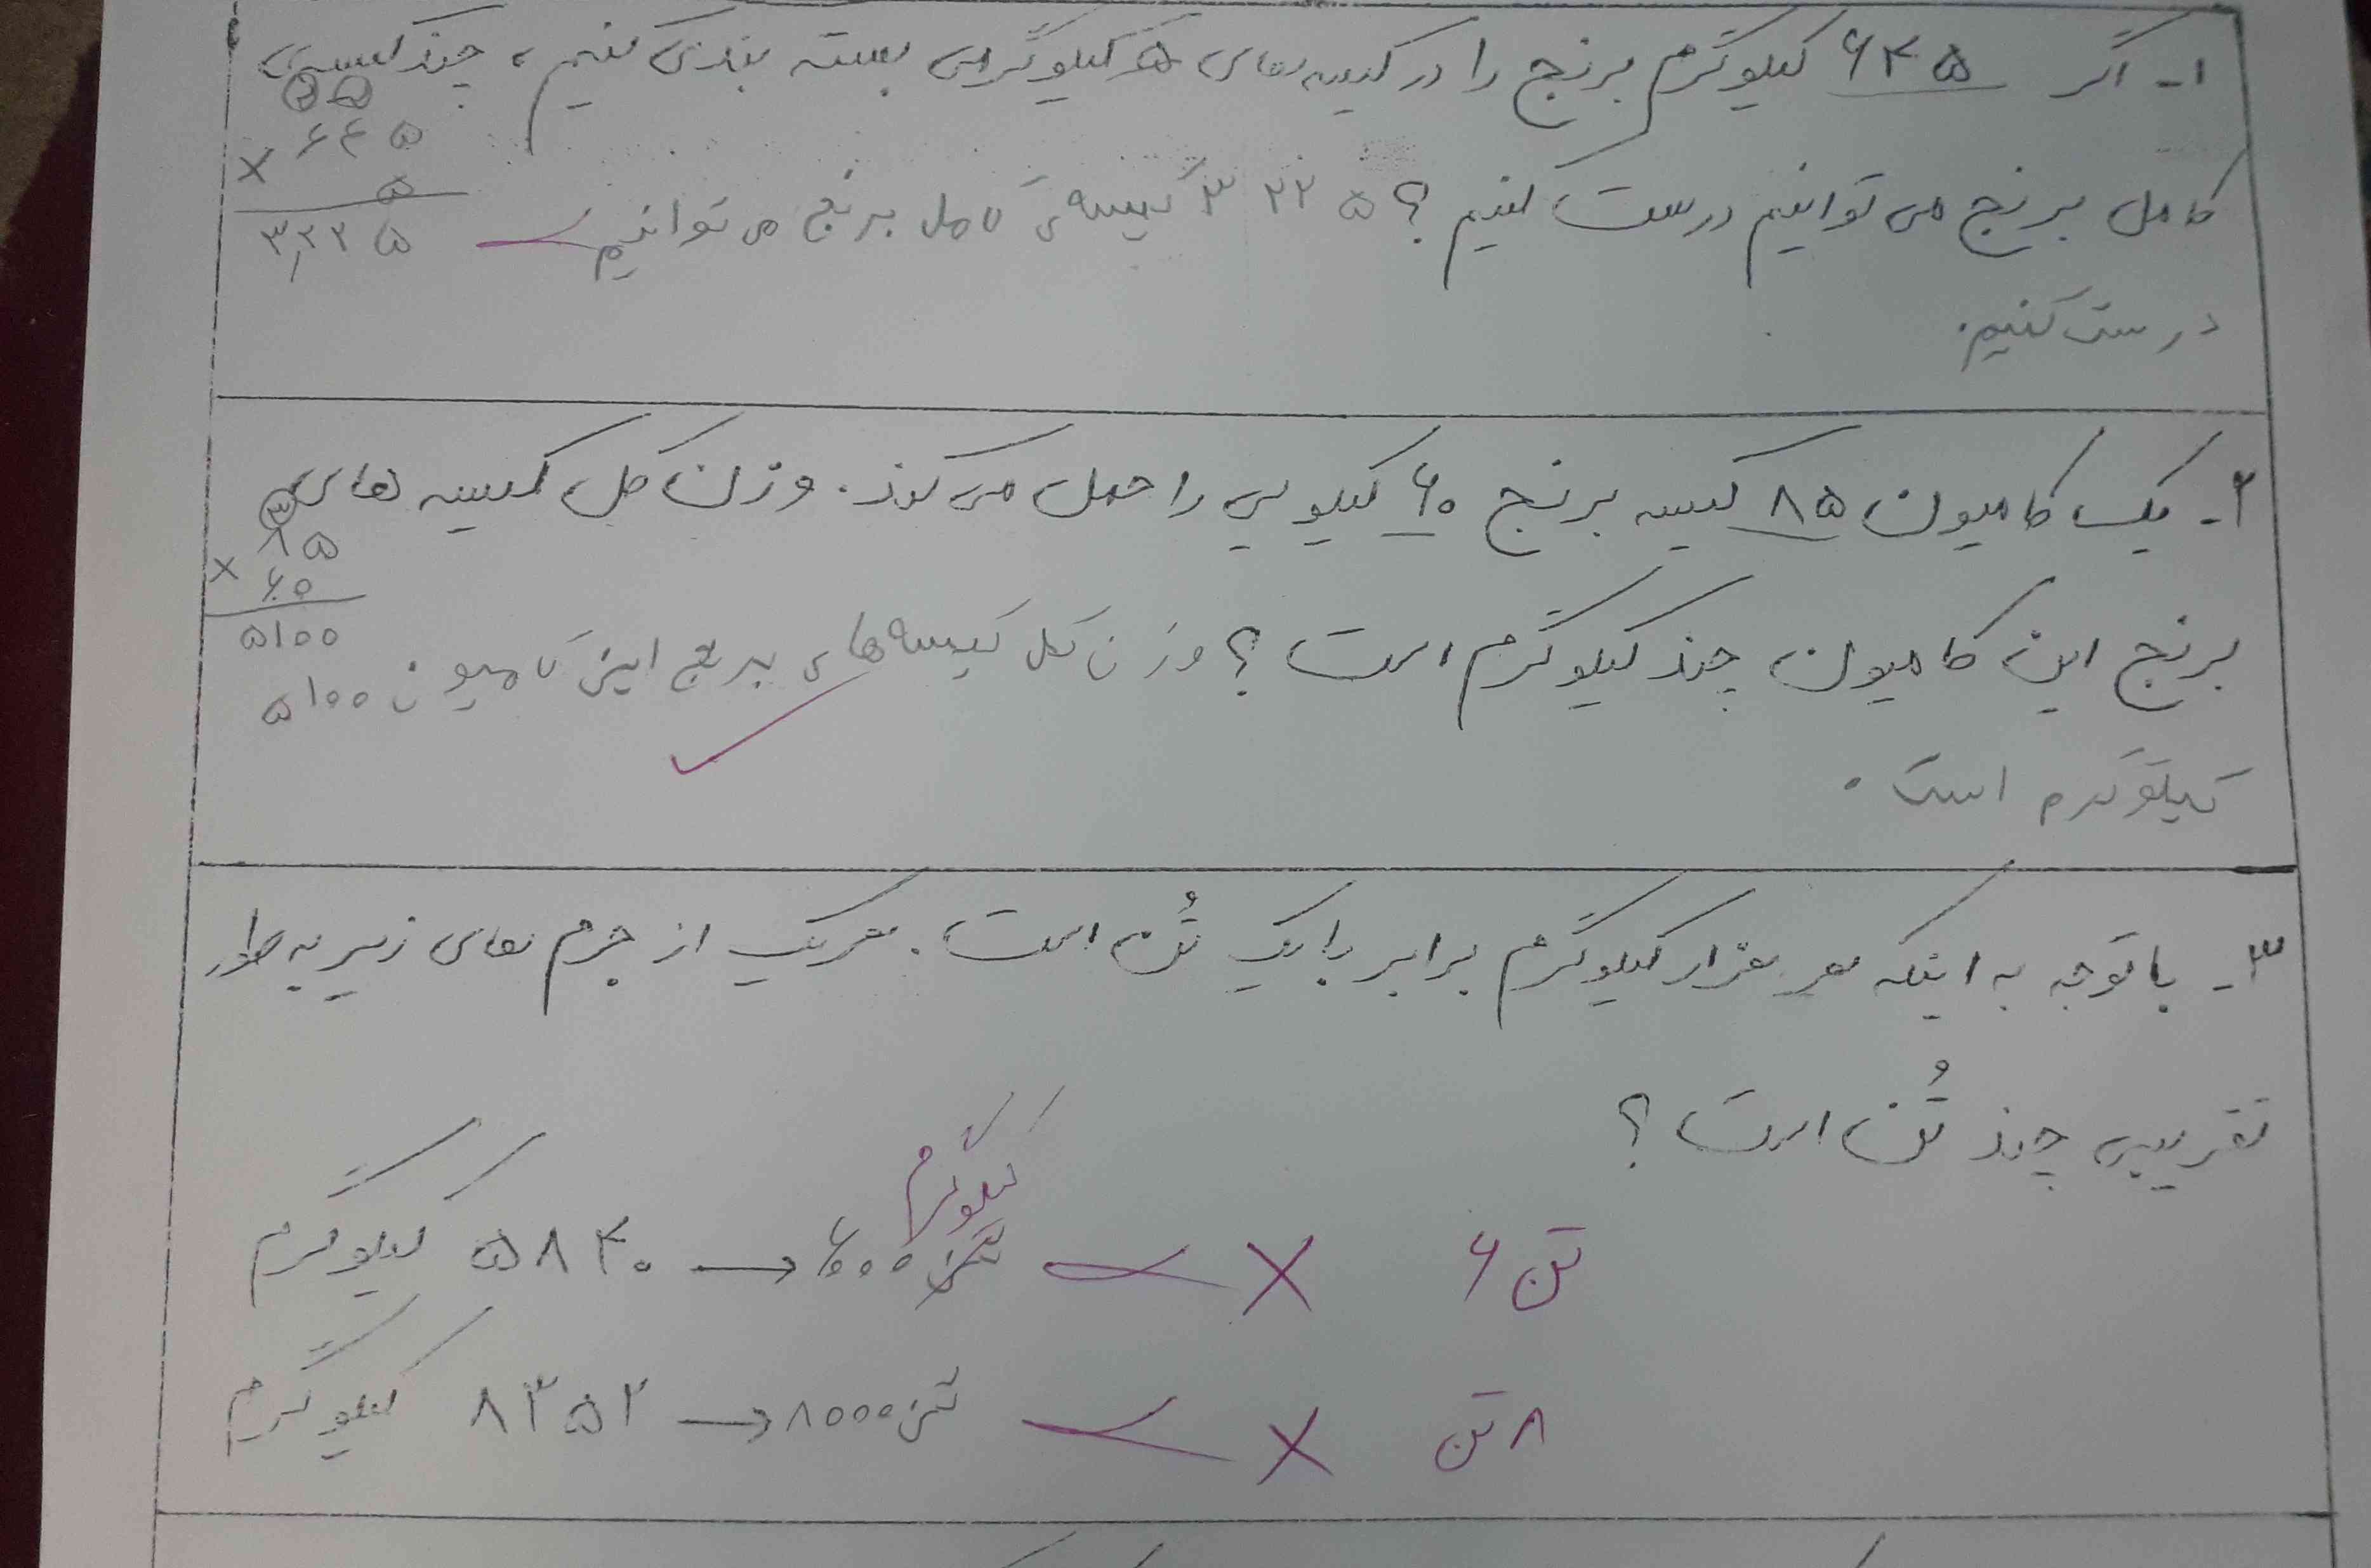 ۱- اگر ۶۴۵ کیلوگرم برنج را در کیسه‌های ۵ کیلوگرمی بسته بندی کنیم، چند کیسه‌ی
۲۲
۶۴۵
× ۵
۳,۲۲۵
کامل برنج می توانیم درست کنیم؟ ۳۲۲۵ کیسه‌ی کامل برنج می توانیم
درست کنیم.
۲- یک کامیون ۸۵ کیسه برنج ۶۰ کیلویی را حمل می‌کند. وزن کل کیسه های
۳
۸۵
× ۶۰
۵۱۰۰
برنج این کامیون چند کیلوگرم است؟ وزن کل کیسه‌های برنج این کامیون ۵۱۰۰
کیلوگرم است.
۳- با توجه به اینکه هر هزار کیلوگرم برابر با یک تُن است. هر یک از جرم های زیر به طور
تقریبی چند تُن است؟
کیلوگرم
۵۸۴۰ کیلوگرم → ۶۰۰۰ تن × ۶ تن
۸۳۵۲ کیلوگرم → ۸۰۰۰ تن × ۸ تن